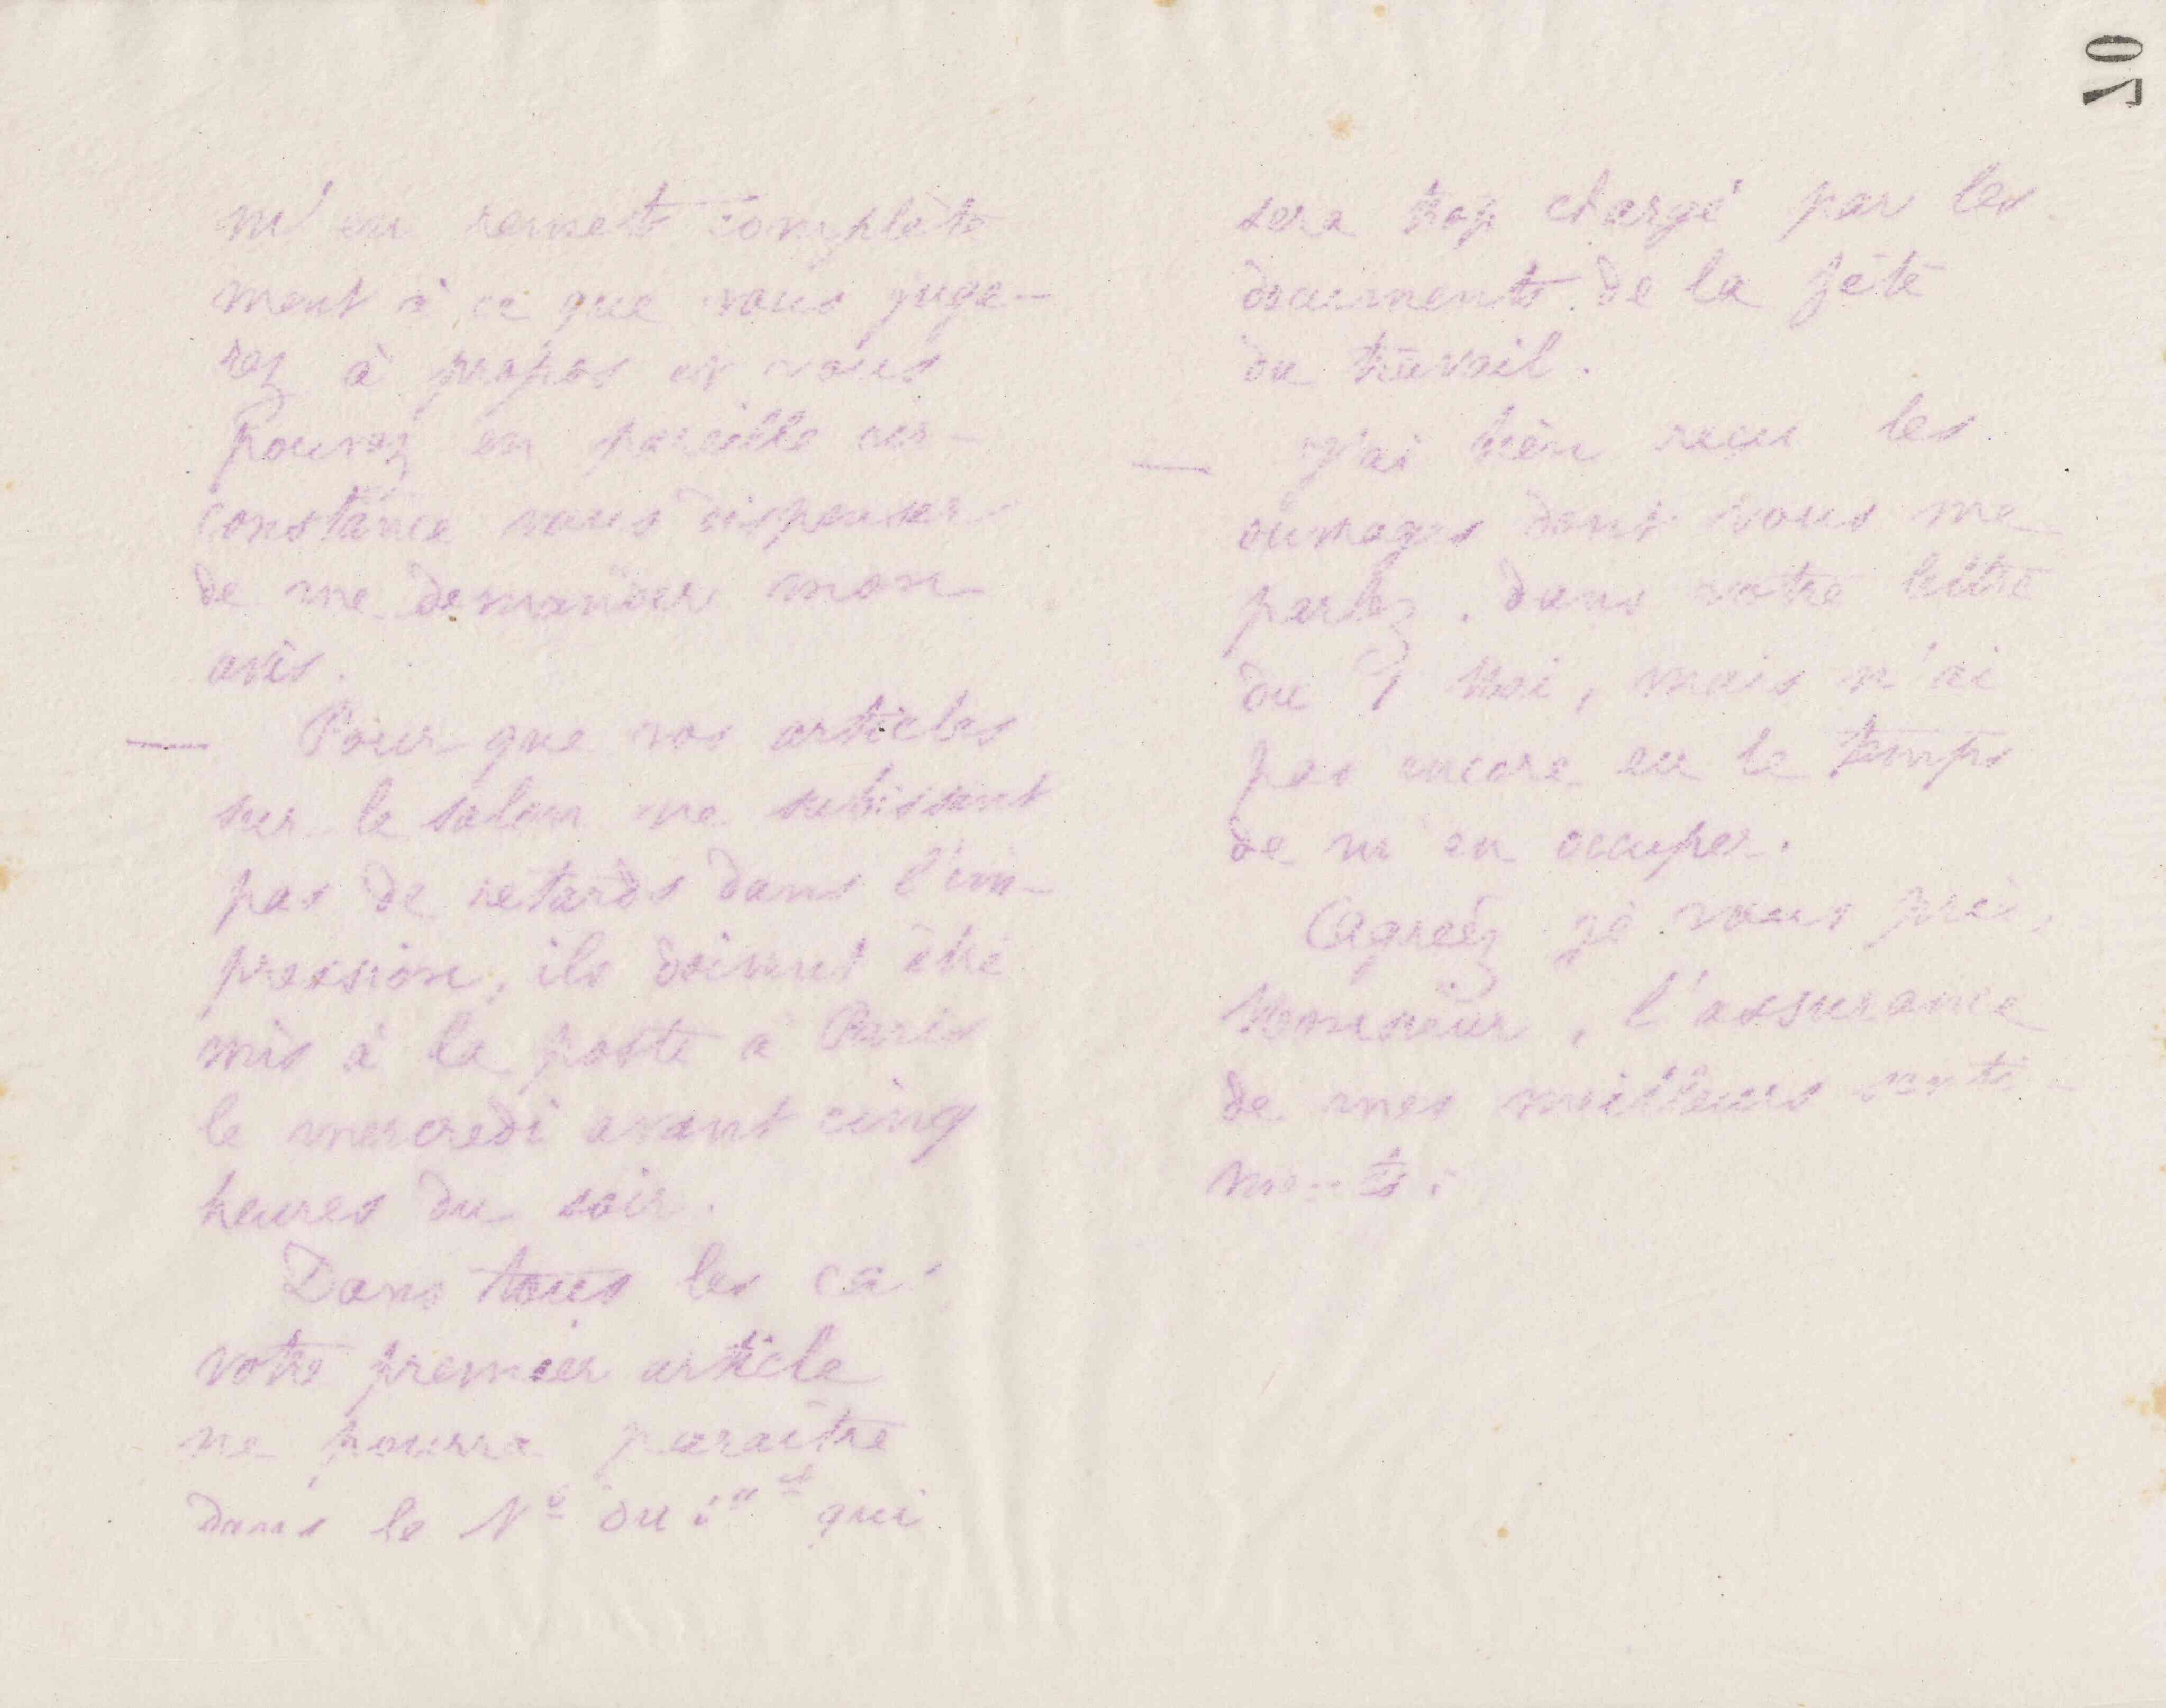 m'en remets complète
ment à ce que vous juge-
rez à propos et vous
pouvez en pareille cir-
constance vous dispenser
de me demander mon
avis.
— Pour que vos articles
sur le salon ne subissent
pas de retards dans l'im-
pression, ils doivent être
mis à la poste à Paris
le mercredi avant cinq
heures du soir.
Dans tous les cas
votre premier article
ne pourra paraître
dans le N° du qui
sera trop chargé par les
documents de la fête
du travail.
— J'ai bien reçu les
ouvrages dont vous me
parlez dans votre lettre
du Mai, mais n'ai
pas encore eu le temps
de m'en occuper.
Agréez je vous prie,
Monsieur, l'assurance
de mes meilleurs senti-
ments.
70